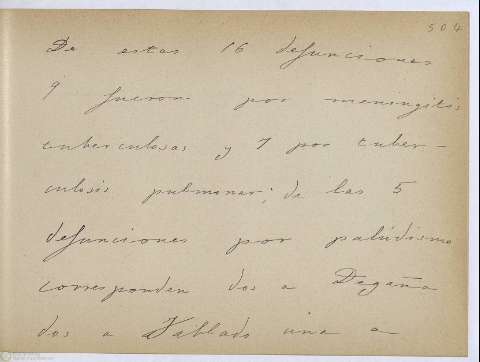 504
De estas 16 defunciones
9 fueron por meningitis
tuberculosas y 7 por tuber-
culosis pulmonar; de las 5
defunciones por palúdismo
corresponden dos a Degaña
dos a Tablado una a